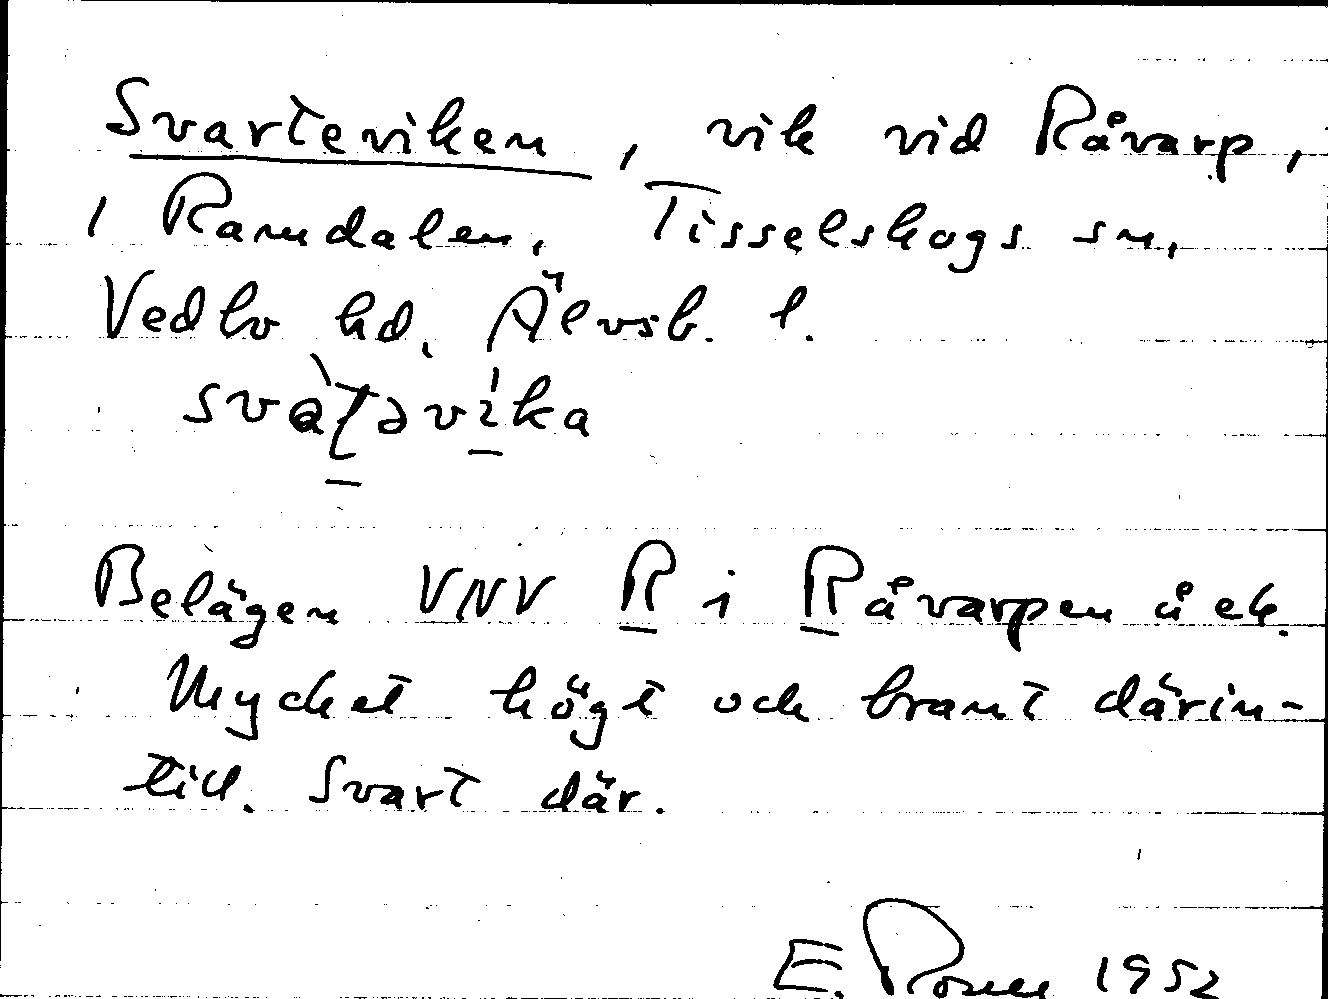 Svarteviken, vik vid Råvarp,
i Ramdalen, Tisselskogs sn,
Vedbo hd, Älvsb. l.
Belägen VNV R i Råvarpen å ek.
Mycket högt och brant därin-
till. Svart där.
E. 1952